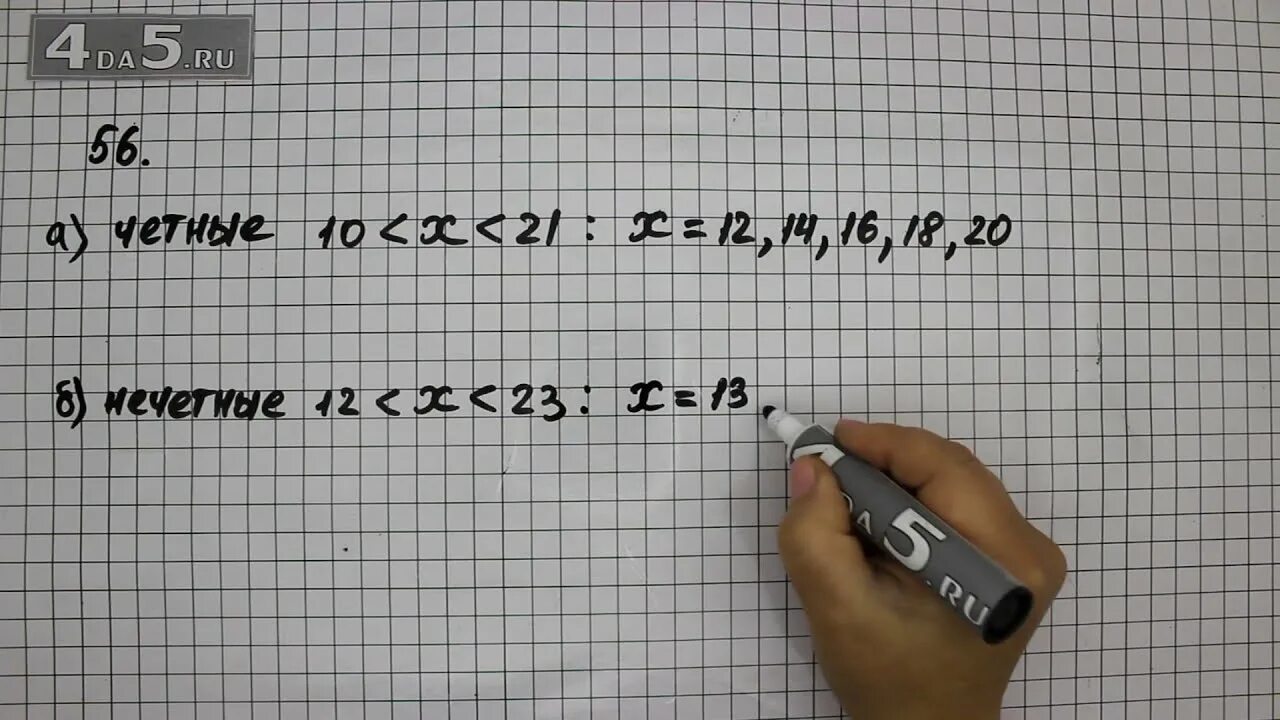 4DA5.RU
56.
а) четные 10 < x < 21 : x = 12, 14, 16, 18, 20
б) нечетные 12 < x < 23 : x = 13
DA5.RU